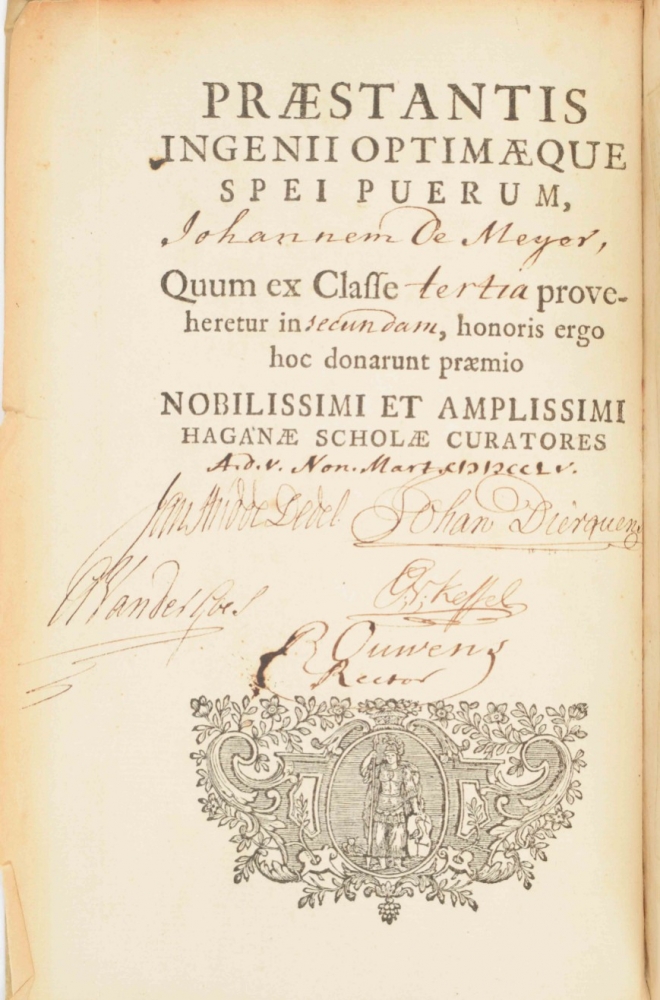 PRÆSTANTIS
INGENII OPTIMÆQUE
SPEI PUERUM,
Johannem De Meyer,
Quum ex Claſſe tertia prove-
heretur in secundam, honoris ergo
hoc donarunt præmio
NOBILISSIMI ET AMPLISSIMI
HAGANÆ SCHOLÆ CURATORES
A.d.v. Non. Mart.
Johan Dierquens
R Ouwens
Rector